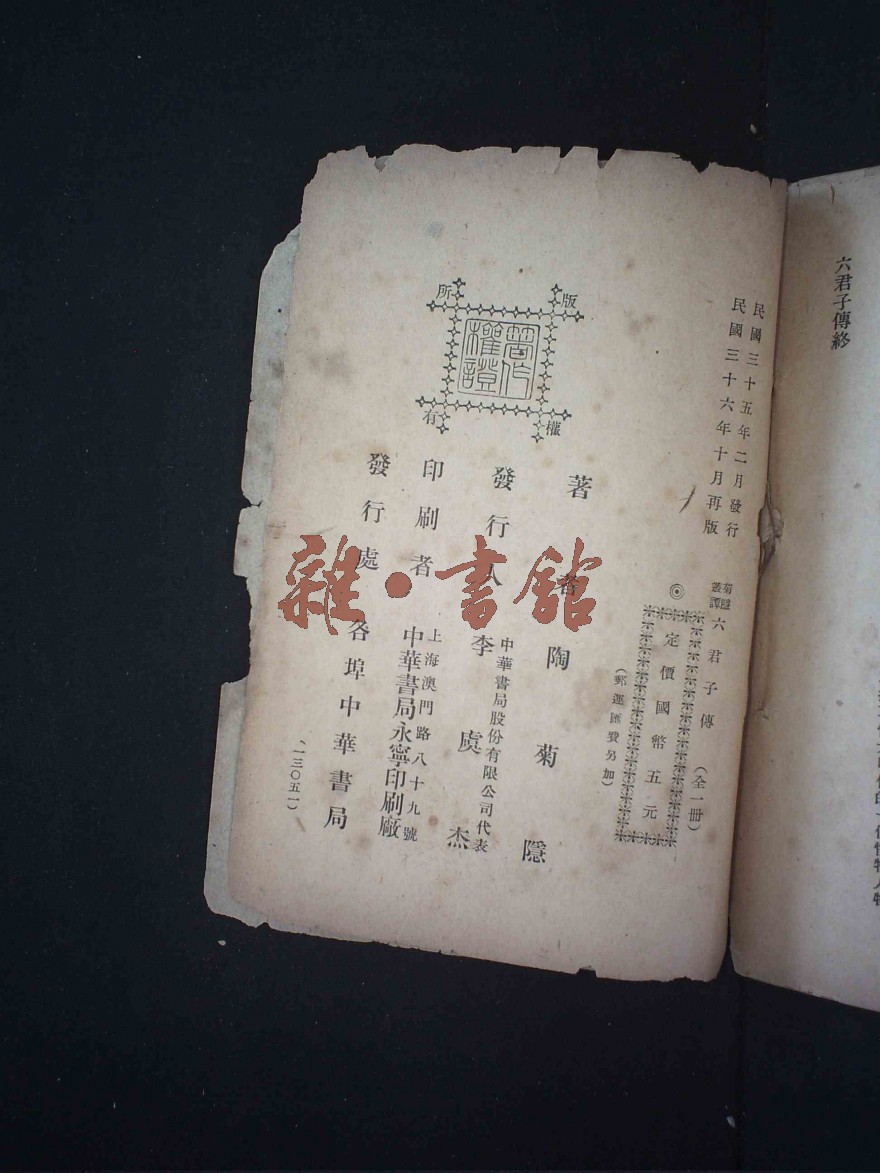 六君子傳終
民國三十五年二月發行
民國三十六年十月再版
菊隱叢譚 六君子傳 (全一冊)
◎定價國幣五元
(郵運匯費另加)
著者 陶菊隱
發行人 李虞杰
中華書局股份有限公司代表
印刷者 中華書局永寧印刷廠
上海澳門路八十九號
發行處 各埠中華書局
(一三〇五一)
版權所有
著作權證
雜·書館